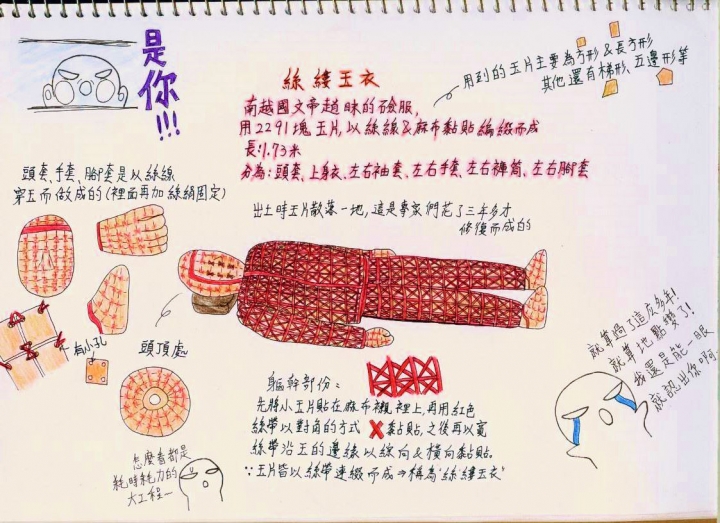 是
你!!!
絲縷玉衣
南越國文帝趙眜的殮服,
用2291塊玉片,以絲線&麻布黏貼編綴而成
長:1.73米
分為:頭套、上身衣、左右袖套、左右手套、左右褲筒、左右腳套
用到的玉片主要為方形&長方形
其他還有梯形、五邊形等
頭套、手套、腳套是以絲線
穿玉而做成的(裡面再加絲絹固定)
出土時玉片散落一地,這是專家們花了三年多才
修復而成的
有小孔
頭頂處
就算過了這麼多年!
就算地點變了!
我還是能一眼
就認出你啊
軀幹部份:
先將小玉片貼在麻布襯裡上,再用紅色
絲帶以對角的方式 X 黏貼,之後再以寬
絲帶沿玉的邊緣以縱向&橫向黏貼。
∵玉片皆以絲帶連綴而成⇒稱為"絲縷玉衣"
怎麼看都是
耗時耗力的
大工程—